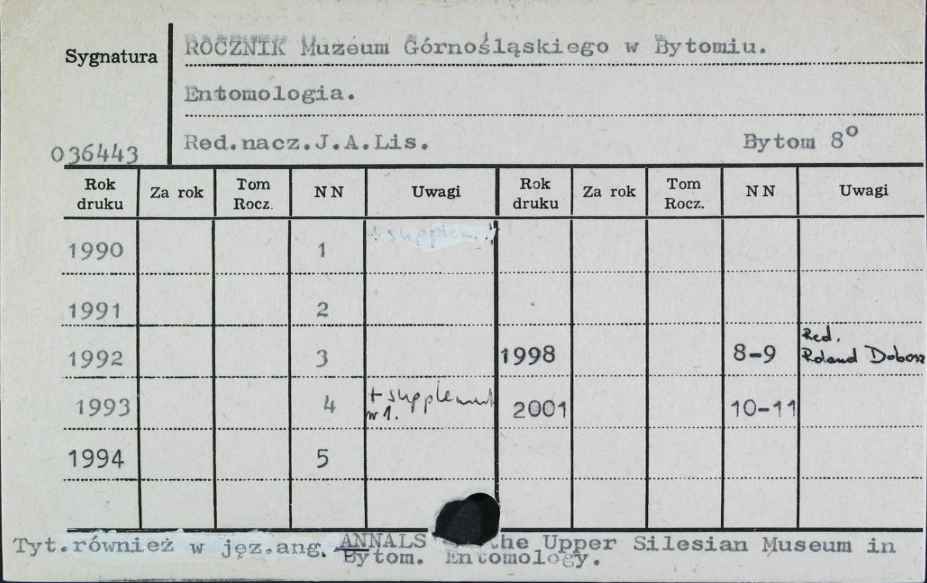 Sygnatura
ROCZNIK Muzeum Górnośląskiego w Bytomiu.
Entomologia.
036443
Red.nacz.J.A.Lis. Bytom 8º
Rok druku Za rok Tom Rocz. NN Uwagi Rok druku Za rok Tom Rocz. NN Uwagi
1990 1 + supplem.
1991 2
1992 3 1998 8-9 Red. Roland Dobosz
1993 4 + supplement nr 1. 2001 10-11
1994 5
Tyt.również w jęz.ang. ANNALS the Upper Silesian Museum in
Bytom. Entomology.